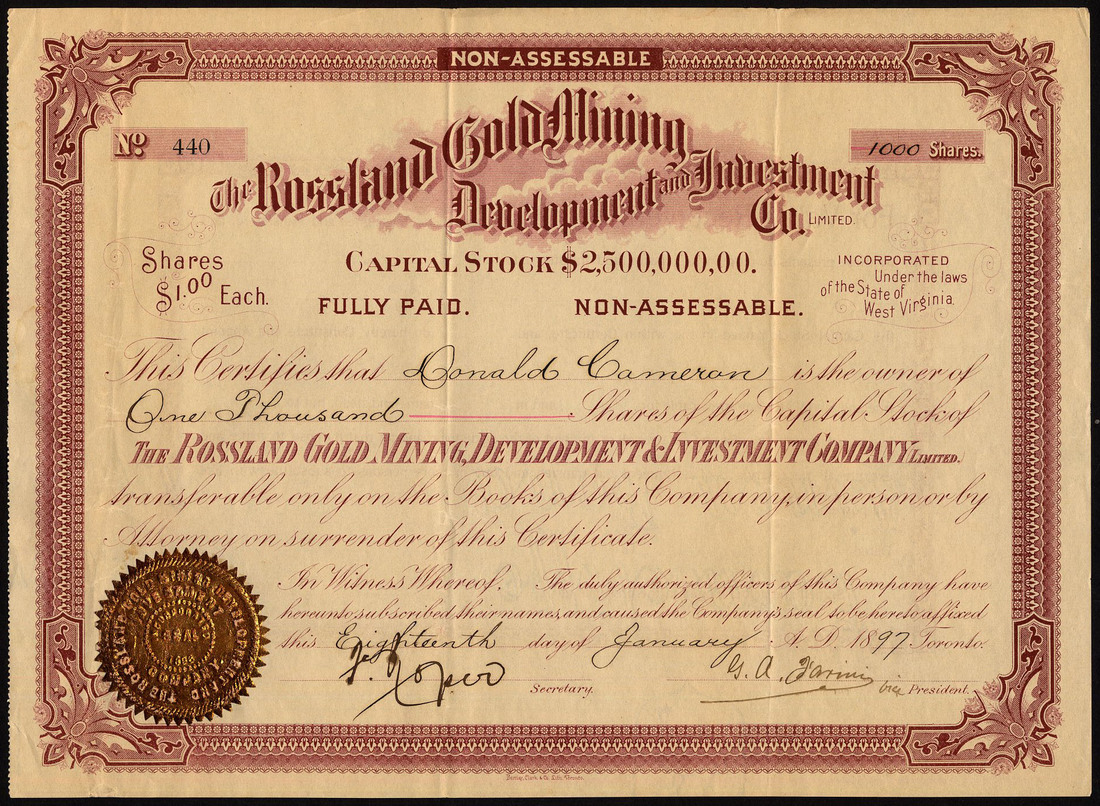 NON-ASSESSABLE
No. 440
1000 Shares.
The Rossland Gold Mining
Development and Investment
Co. LIMITED.
Shares
$1.00 Each.
CAPITAL STOCK $2,500,000,00.
INCORPORATED
Under the laws
of the State of
West Virginia.
FULLY PAID. NON-ASSESSABLE.
This Certifies that Donald Cameron is the owner of
One Thousand Shares of the Capital Stock of
THE ROSSLAND GOLD MINING, DEVELOPMENT & INVESTMENT COMPANY LIMITED.
transferable only on the Books of this Company, in person or by
Attorney on surrender of this Certificate.
In Witness Whereof. The duly authorized officers of this Company have
hereunto subscribed their names, and caused the Company's seal to be hereto affixed
this Eighteenth day of January A.D. 1897. Toronto.
Secretary.
G. A. Farini vice President.
SEAL